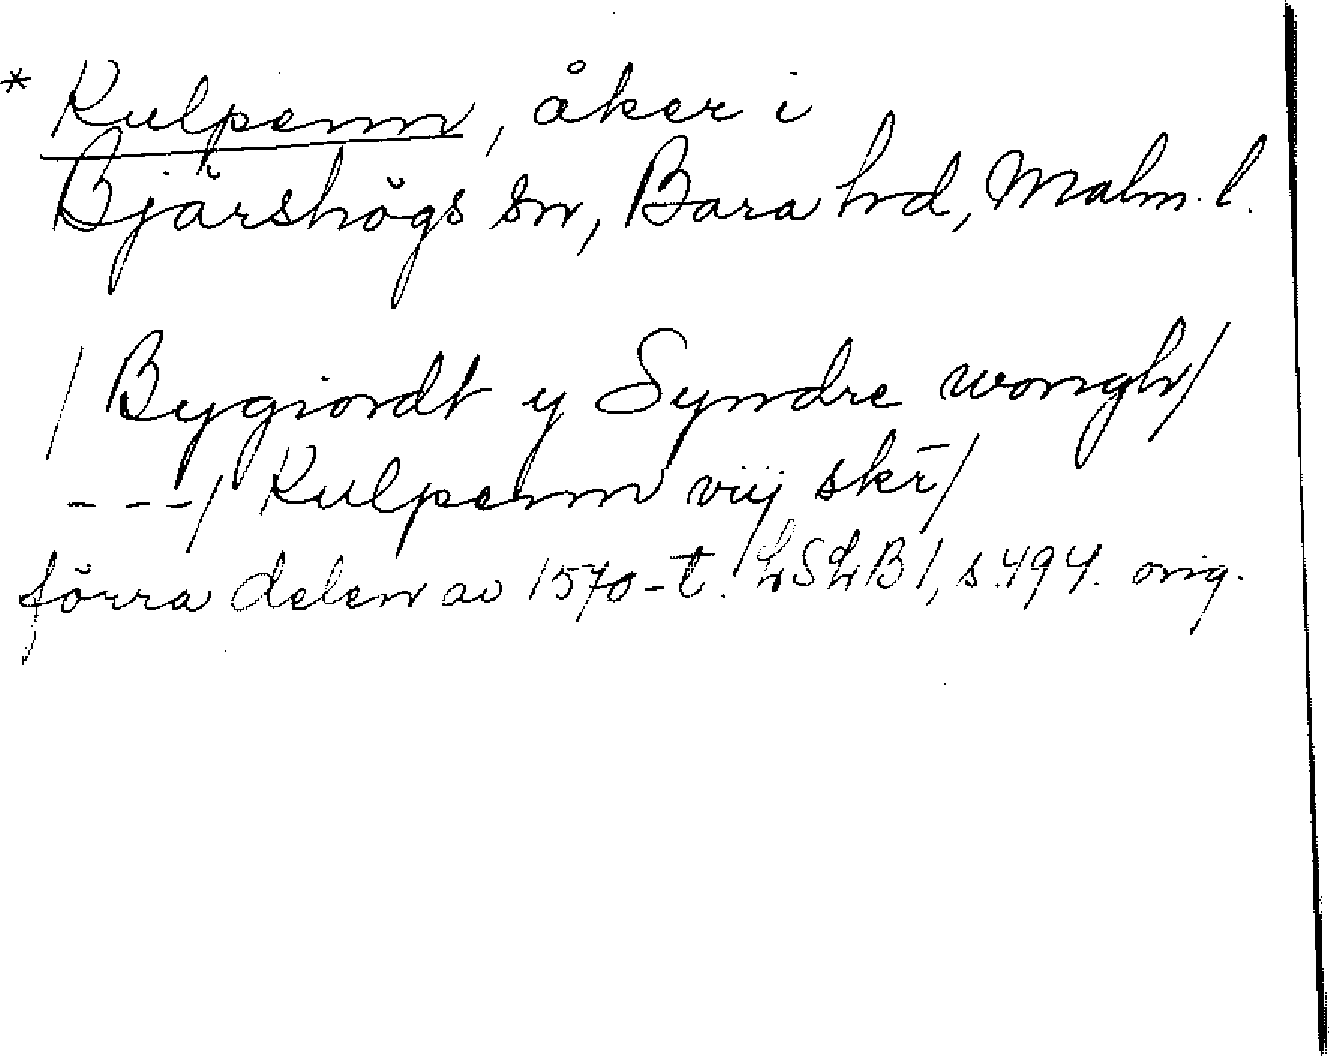 * Kulpenn, åker i
Bjärshögs sn, Bara hd, Malm. l.
/ Bygiordt y Syndre wongh /
- - - / Kulpenn viij skr̄ /
förra delen av 1570-t. LSLB 1, s. 494. orig.